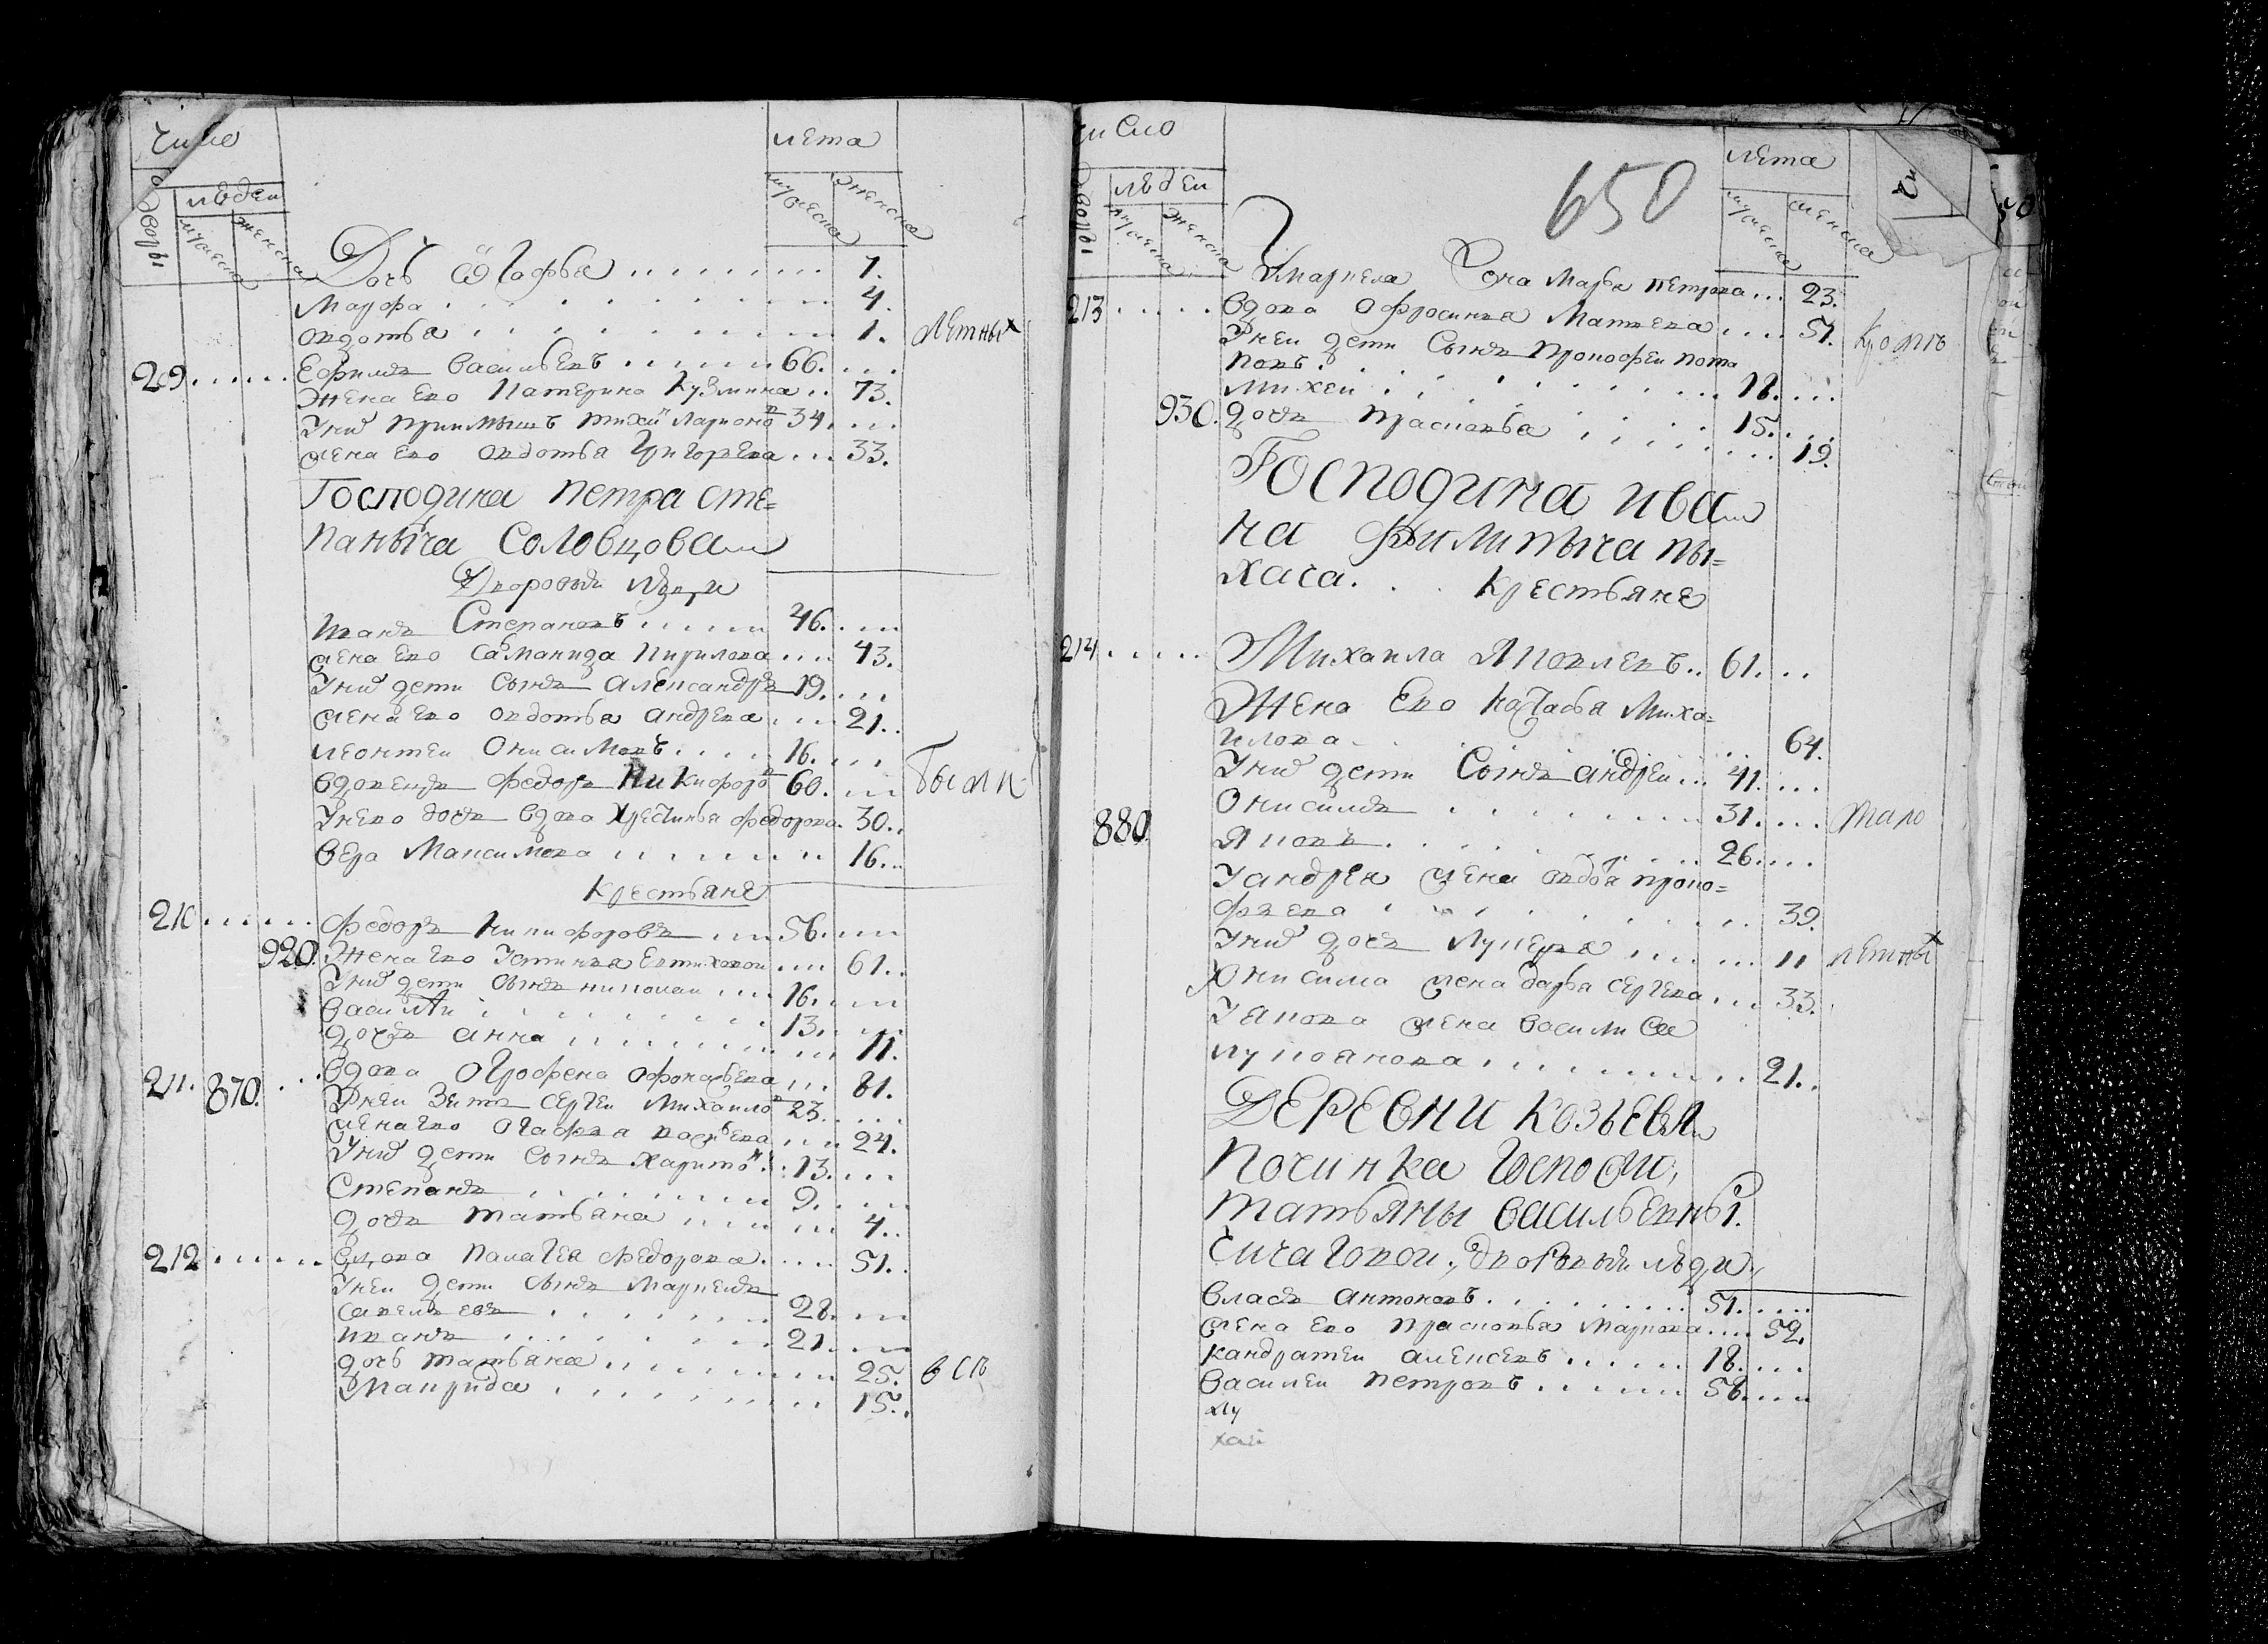 Число лета
дворы людеи
мужеска женска мужеска женска
Дочь Огафья ....... 7.
Марфа ....... 4.
овдотья ....... 1. летных
209 ...... Ефимъ Васильевъ ...... 66. ...
Жена ево Катерина Кузмина .. 73.
Унив приимышъ тихѡй Ларионов 34. ...
жена ево овдотья Григорева ... 33.
Господина петра сте=
паныча Соловцова
Дворовыя люди
иванъ Степановъ ...... 46. ...
жена ево Саманида Кирилова .... 43.
Унив дети сынъ Александръ 19. ...
жена ево овдотья андрева .... 21..
леонтеи Онисимовъ .... 16. ...
вдовецъ федоръ Никифоров 60. ... былп
Унево дочь вдова Хрестинья федорова. 30..
вера Максимова ....... 16...
Крестьяне
210 ...... федоръ Никифоровъ ... 56. ...
920. Жена ево Устинья Евтихова .... 61..
Унив дети сынъ николаи ... 16. ...
Василеи ........ 13. ...
дочь анна ........ 11.
211. 870. ... Вдова Огрофена Офонасьева ... 81.
Унеи Зять сергеи Михаилов 23. ...
жена ево Огафья васильева ... 24.
Унив дети сынъ харитон .. 13. ...
Степанъ ........ 9. ...
дочь татьяна ........ 4..
212 ...... вдова палагея федорова ..... 51..
Унеи дети сынъ Маркелъ
савельевъ ........ 28. ...
иванъ ........ 21. ...
дочь татьяна ........ 25. всп
Макрида ........ 15..
число 650 лета
дворы людеи
мужеска женска мужеска женска
Умаркела жена Марья петрова ... 23.
213 ..... вдова Офросинья Матвева .... 51. кромъ
Унеи дети Сынъ Прокофеи пота
повъ ........ 18. ...
Михеи ........ 15. ...
930. дочь прасковья ........ 19.
Господина ива
на филипыча пы=
хача. Крестьяне
214 ..... Михаила Яковлевъ .. 61. ..
Жена Ево Наталья Миха=
илова ........ 64.
Унив дети Сынъ андреи ... 41. ...
Онисимъ ........ 31. ... тало
880. Яковъ ........ 26. ...
Уандрея жена овдотья проко=
фьева ........ 39.
Унив дочь Лукерья ........ 11 летных
Уонисима жена дарья сергева ... 33.
Уякова жена василиса
лукоянова ........ 21..
ДЕРЕВНИ КОЗЬЕВА
Починка Госпожи
татьяны васильевны
Чичаговои, дворовыя люди
власъ антоновъ ........ 51. ....
жена ево прасковья Маркова .... 52.
кандратеи алексевъ ...... 18. ...
василеи петровъ ...... 58. ...
лу
хаи